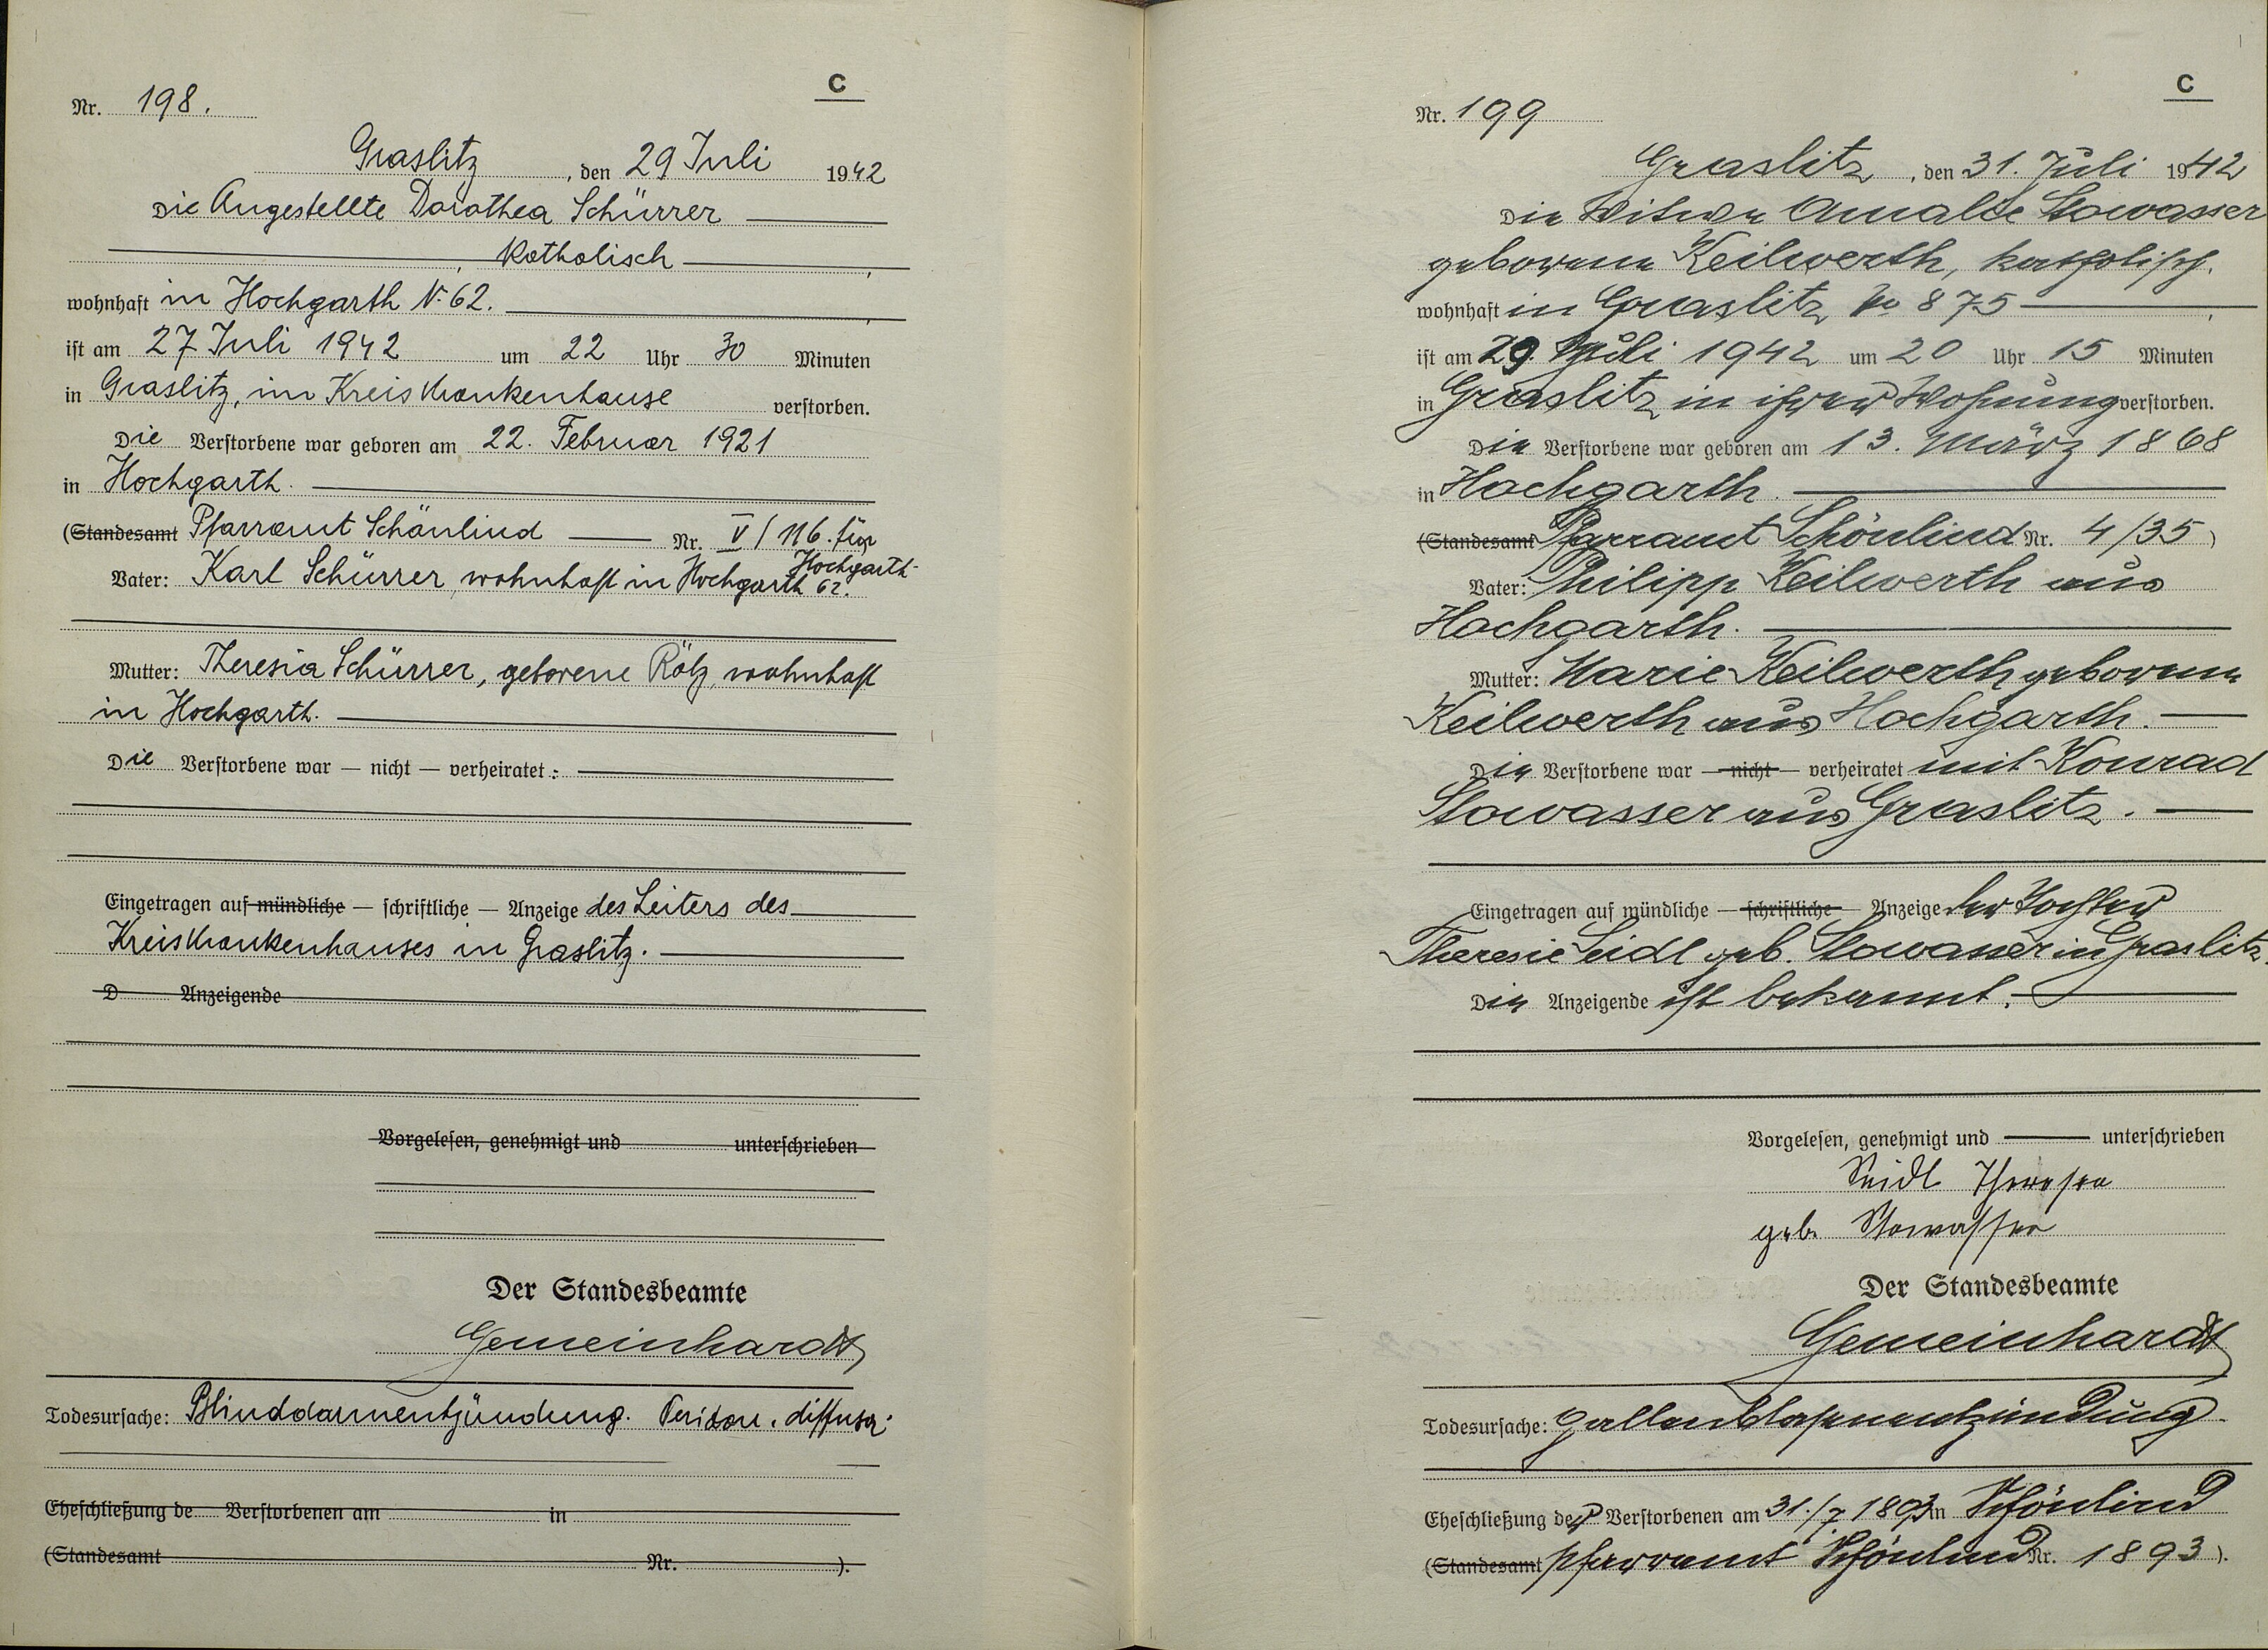 C
Nr. 198.
Graslitz, den 29 Juli 1942
Die Angestellte Dorothea Schürrer
, Katholisch,
wohnhaft in Hochgarth N. 62.,
ist am 27 Juli 1942 um 22 Uhr 30 Minuten
in Graslitz, im Kreiskrankenhause verstorben.
Die Verstorbene war geboren am 22. Februar 1921
in Hochgarth.
(Standesamt Pfarramt Schönlind Nr. V/116. für
Hochgarth
Vater: Karl Schürrer, wohnhaft in Hochgarth 62.
Mutter: Theresia Schürrer, geborene Rölz, wohnhaft
in Hochgarth.
Die Verstorbene war — nicht — verheiratet.
Eingetragen auf mündliche — schriftliche — Anzeige des Leiters des
Kreiskrankenhauses in Graslitz.
D Anzeigende
Vorgelesen, genehmigt und unterschrieben
Der Standesbeamte
Gemeinhardt
Todesursache: Blinddarmentzündung. Periton. diffusa.
Eheschließung de Verstorbenen am in
(Standesamt Nr. ).
C
Nr. 199
Graslitz, den 31. Juli 1942
Die Witwe Amalie Stowasser
geborene Keilwerth, katholisch.
wohnhaft in Graslitz No 875,
ist am 29. Juli 1942 um 20 Uhr 15 Minuten
in Graslitz in ihrer Wohnung verstorben.
Die Verstorbene war geboren am 13. März 1868
in Hochgarth.
(Standesamt Pfarramt Schönlind Nr. 4/35)
Vater: Philipp Keilwerth aus
Hochgarth.
Mutter: Marie Keilwerth geborene
Keilwerth aus Hochgarth.
Die Verstorbene war — nicht — verheiratet mit Konrad
Stowasser aus Graslitz.
Eingetragen auf mündliche — schriftliche — Anzeige der Tochter
Theresie Seidl geb. Stowasser in Graslitz.
Die Anzeigende ist bekannt.
Vorgelesen, genehmigt und unterschrieben
Seidl Theresea
geb. Stowasser
Der Standesbeamte
Gemeinhardt
Todesursache: Gallenblasenentzündung.
Eheschließung der Verstorbenen am 31./7 1893 in Schönlind
(Standesamt Pfarramt Schönlind Nr. 1893).